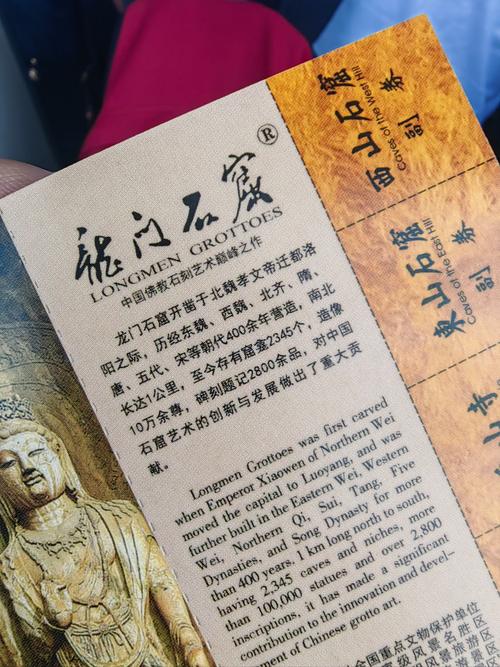 龍门石窟®
LONGMEN GROTTOES
中国佛教石刻艺术巅峰之作
龙门石窟开凿于北魏孝文帝迁都洛
阳之际，历经东魏、西魏、北齐、隋、
唐、五代、宋等朝代400余年营造，南北
长达1公里，至今存有窟龛2345个，造像
10万余尊，碑刻题记2800余品，对中国
石窟艺术的创新与发展做出了重大贡
献。
Longmen Grottoes was first carved
when Emperor Xiaowen of Northern Wei
moved the capital to Luoyang, and was
further built in the Eastern Wei, Western
Wei, Northern Qi, Sui, Tang, Five
Dynasties, and Song Dynasty for more
than 400 years. 1 km long north to south,
having 2,345 caves and niches, more
than 100,000 statues and over 2,800
inscriptions, it has made a significant
contribution to the innovation and devel-
opment of Chinese grotto art.
全国重点文物保护单位
西山石窟
Caves of the West Hill
副券
東山石窟
Caves of the East Hill
副券
山寺